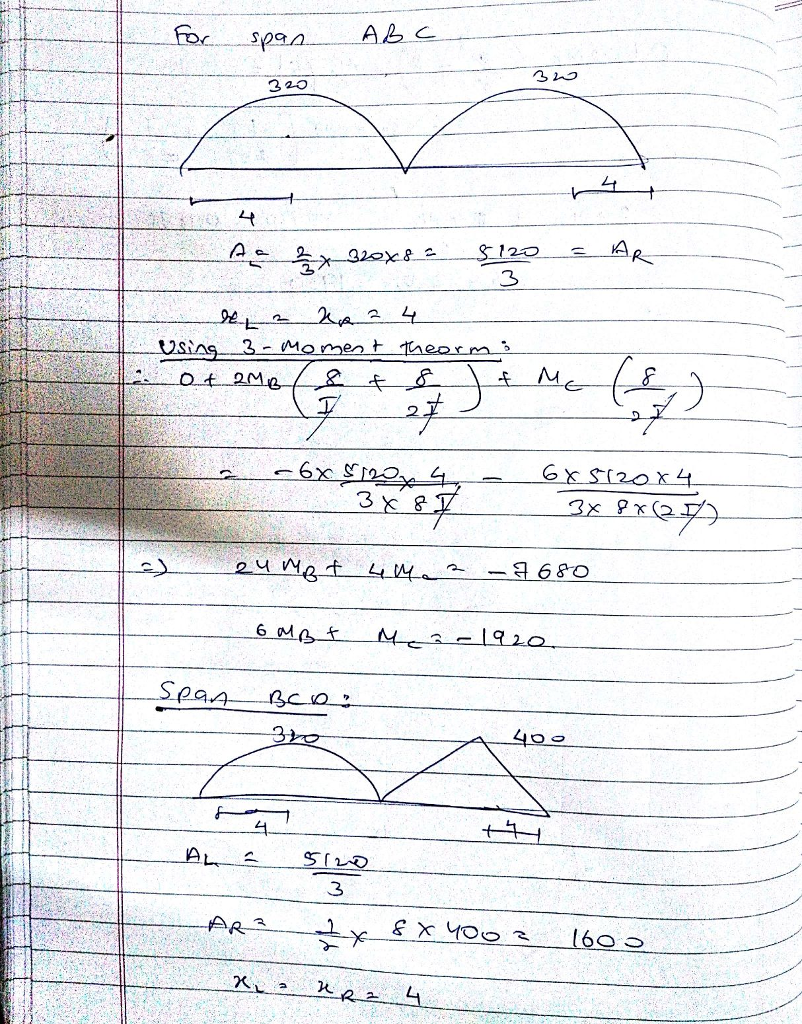 For span ABC
320 320
4 4
A_L = 2/3 × 320×8 = 5120/3 = A_R
x_L = x_R = 4
Using 3-Moment theorm:
∴ 0 + 2M_B (8/I + 8/2I) + M_C (8/2I)
= -6×5120×4/3×8I - 6×5120×4/3×8×(2I)
=) 24 M_B + 4 M_C = -7680
6 M_B + M_C = -1920.
Span BCD:
320 400
4 4
A_L = 5120/3
A_R = 1/2 × 8×400 = 1600
x_L = x_R = 4